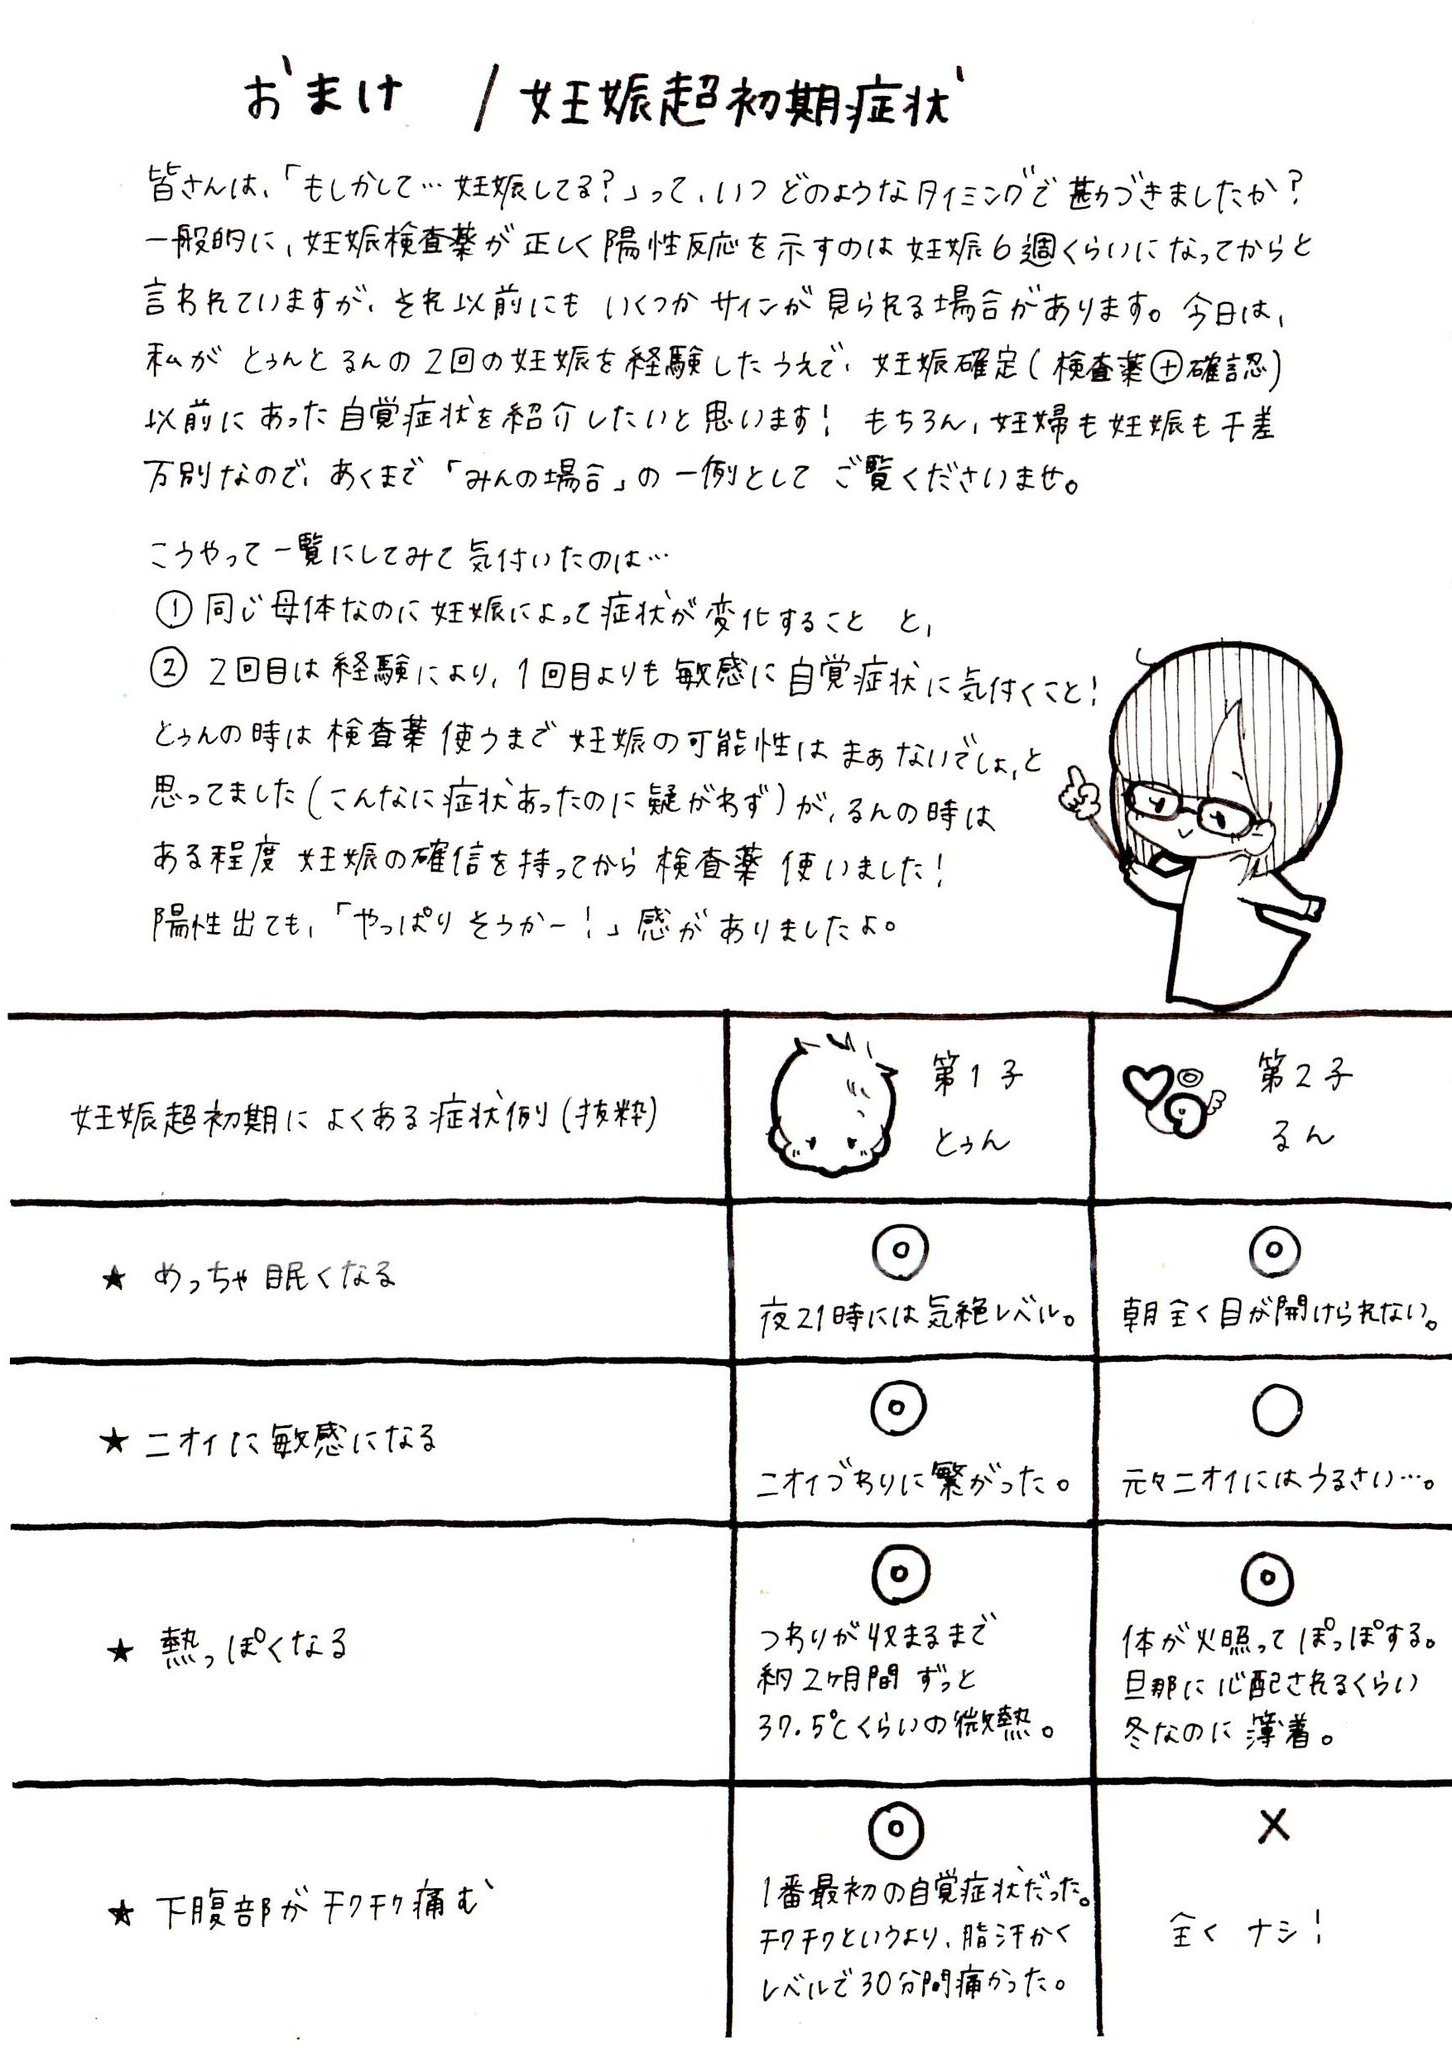 おまけ / 妊娠超初期症状
皆さんは、「もしかして…妊娠してる?」って、いつどのようなタイミングで勘づきましたか?
一般的に、妊娠検査薬が正しく陽性反応を示すのは妊娠6週くらいになってからと
言われていますが、それ以前にもいくつかサインが見られる場合があります。今日は、
私がとぅんとるんの2回の妊娠を経験したうえで、妊娠確定(検査薬⊕確認)
以前にあった自覚症状を紹介したいと思います! もちろん、妊婦も妊娠も千差
万別なので、あくまで「みんの場合」の一例としてご覧くださいませ。
こうやって一覧にしてみて気付いたのは…
① 同じ母体なのに妊娠によって症状が変化すること と、
② 2回目は経験により、1回目よりも敏感に自覚症状に気付くこと!
とぅんの時は検査薬使うまで妊娠の可能性はまぁないでしょ、と
思ってました(こんなに症状あったのに疑がわず)が、るんの時は
ある程度妊娠の確信を持ってから検査薬使いました!
陽性出ても、「やっぱりそうかー!」感がありましたよ。
妊娠超初期によくある症状例(抜粋)
第1子
とぅん
第2子
るん
★ めっちゃ眠くなる
◎
夜21時には気絶レベル。
◎
朝全く目が開けられない。
★ ニオイに敏感になる
◎
ニオイづわりに繋がった。
○
元々ニオイにはうるさい…。
★ 熱っぽくなる
◎
つわりが収まるまで
約2ヶ月間ずっと
37.5℃くらいの微熱。
◎
体が火照ってぽっぽする。
旦那に心配されるくらい
冬なのに薄着。
★ 下腹部がチクチク痛む
◎
1番最初の自覚症状だった。
チクチクというより、脂汗かく
レベルで30分間痛かった。
×
全くナシ!